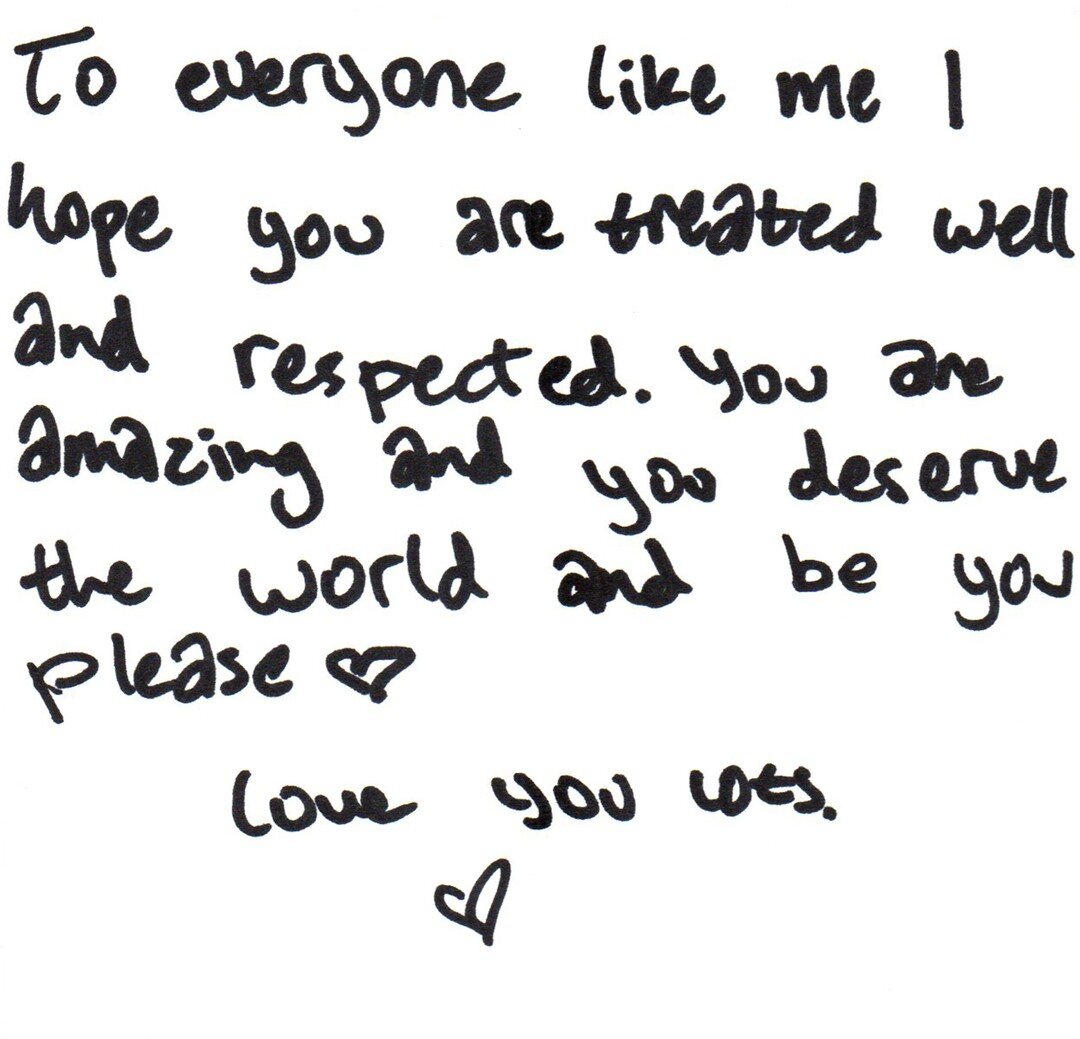 To everyone like me I
hope you are treated well
and respected. You are
amazing and you deserve
the world and be you
please ♡
Love you lots.
♡